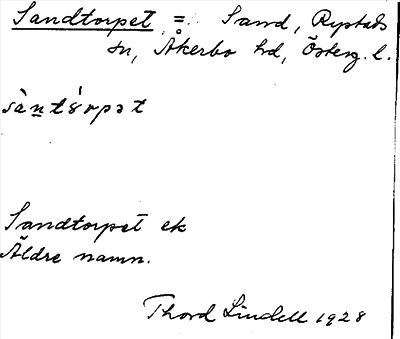 Sandtorpet = Sand, Rystads
sn, Åkerbo hd, Österg. l.
sàntórpət
Sandtorpet ek
Äldre namn.
Thord Lindell 1928